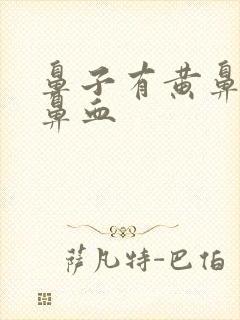 鼻子有黄鼻
鼻血
萨凡特-巴伯